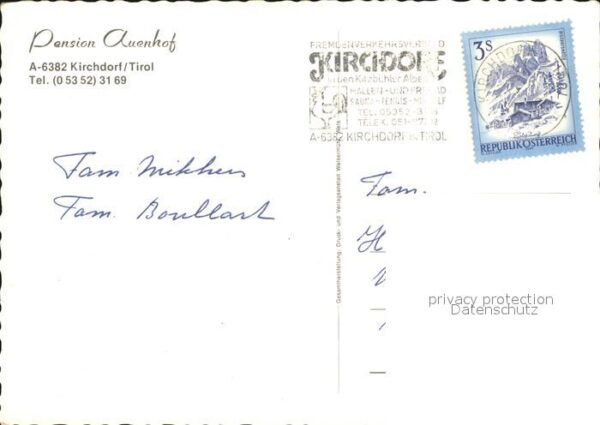 Pension Auenhof
A-6382 Kirchdorf/Tirol
Tel. (0 53 52) 31 69
FREMDENVERKEHRSVERBAND
KIRCHDORF
in den Kitzbühler Alpen
HALLEN- UND FREIBAD
SAUNA-TENNIS-MINIGOLF
TEL. 05352-3
TELEX. 051-
A-6382 KIRCHDORF IN TIROL
3 S
REPUBLIK ÖSTERREICH
Fam.
Fam. Boullart
Gesamtherstellung: Druck- und Verlagsanstalt
Fam.
H
privacy protection
Datenschutz